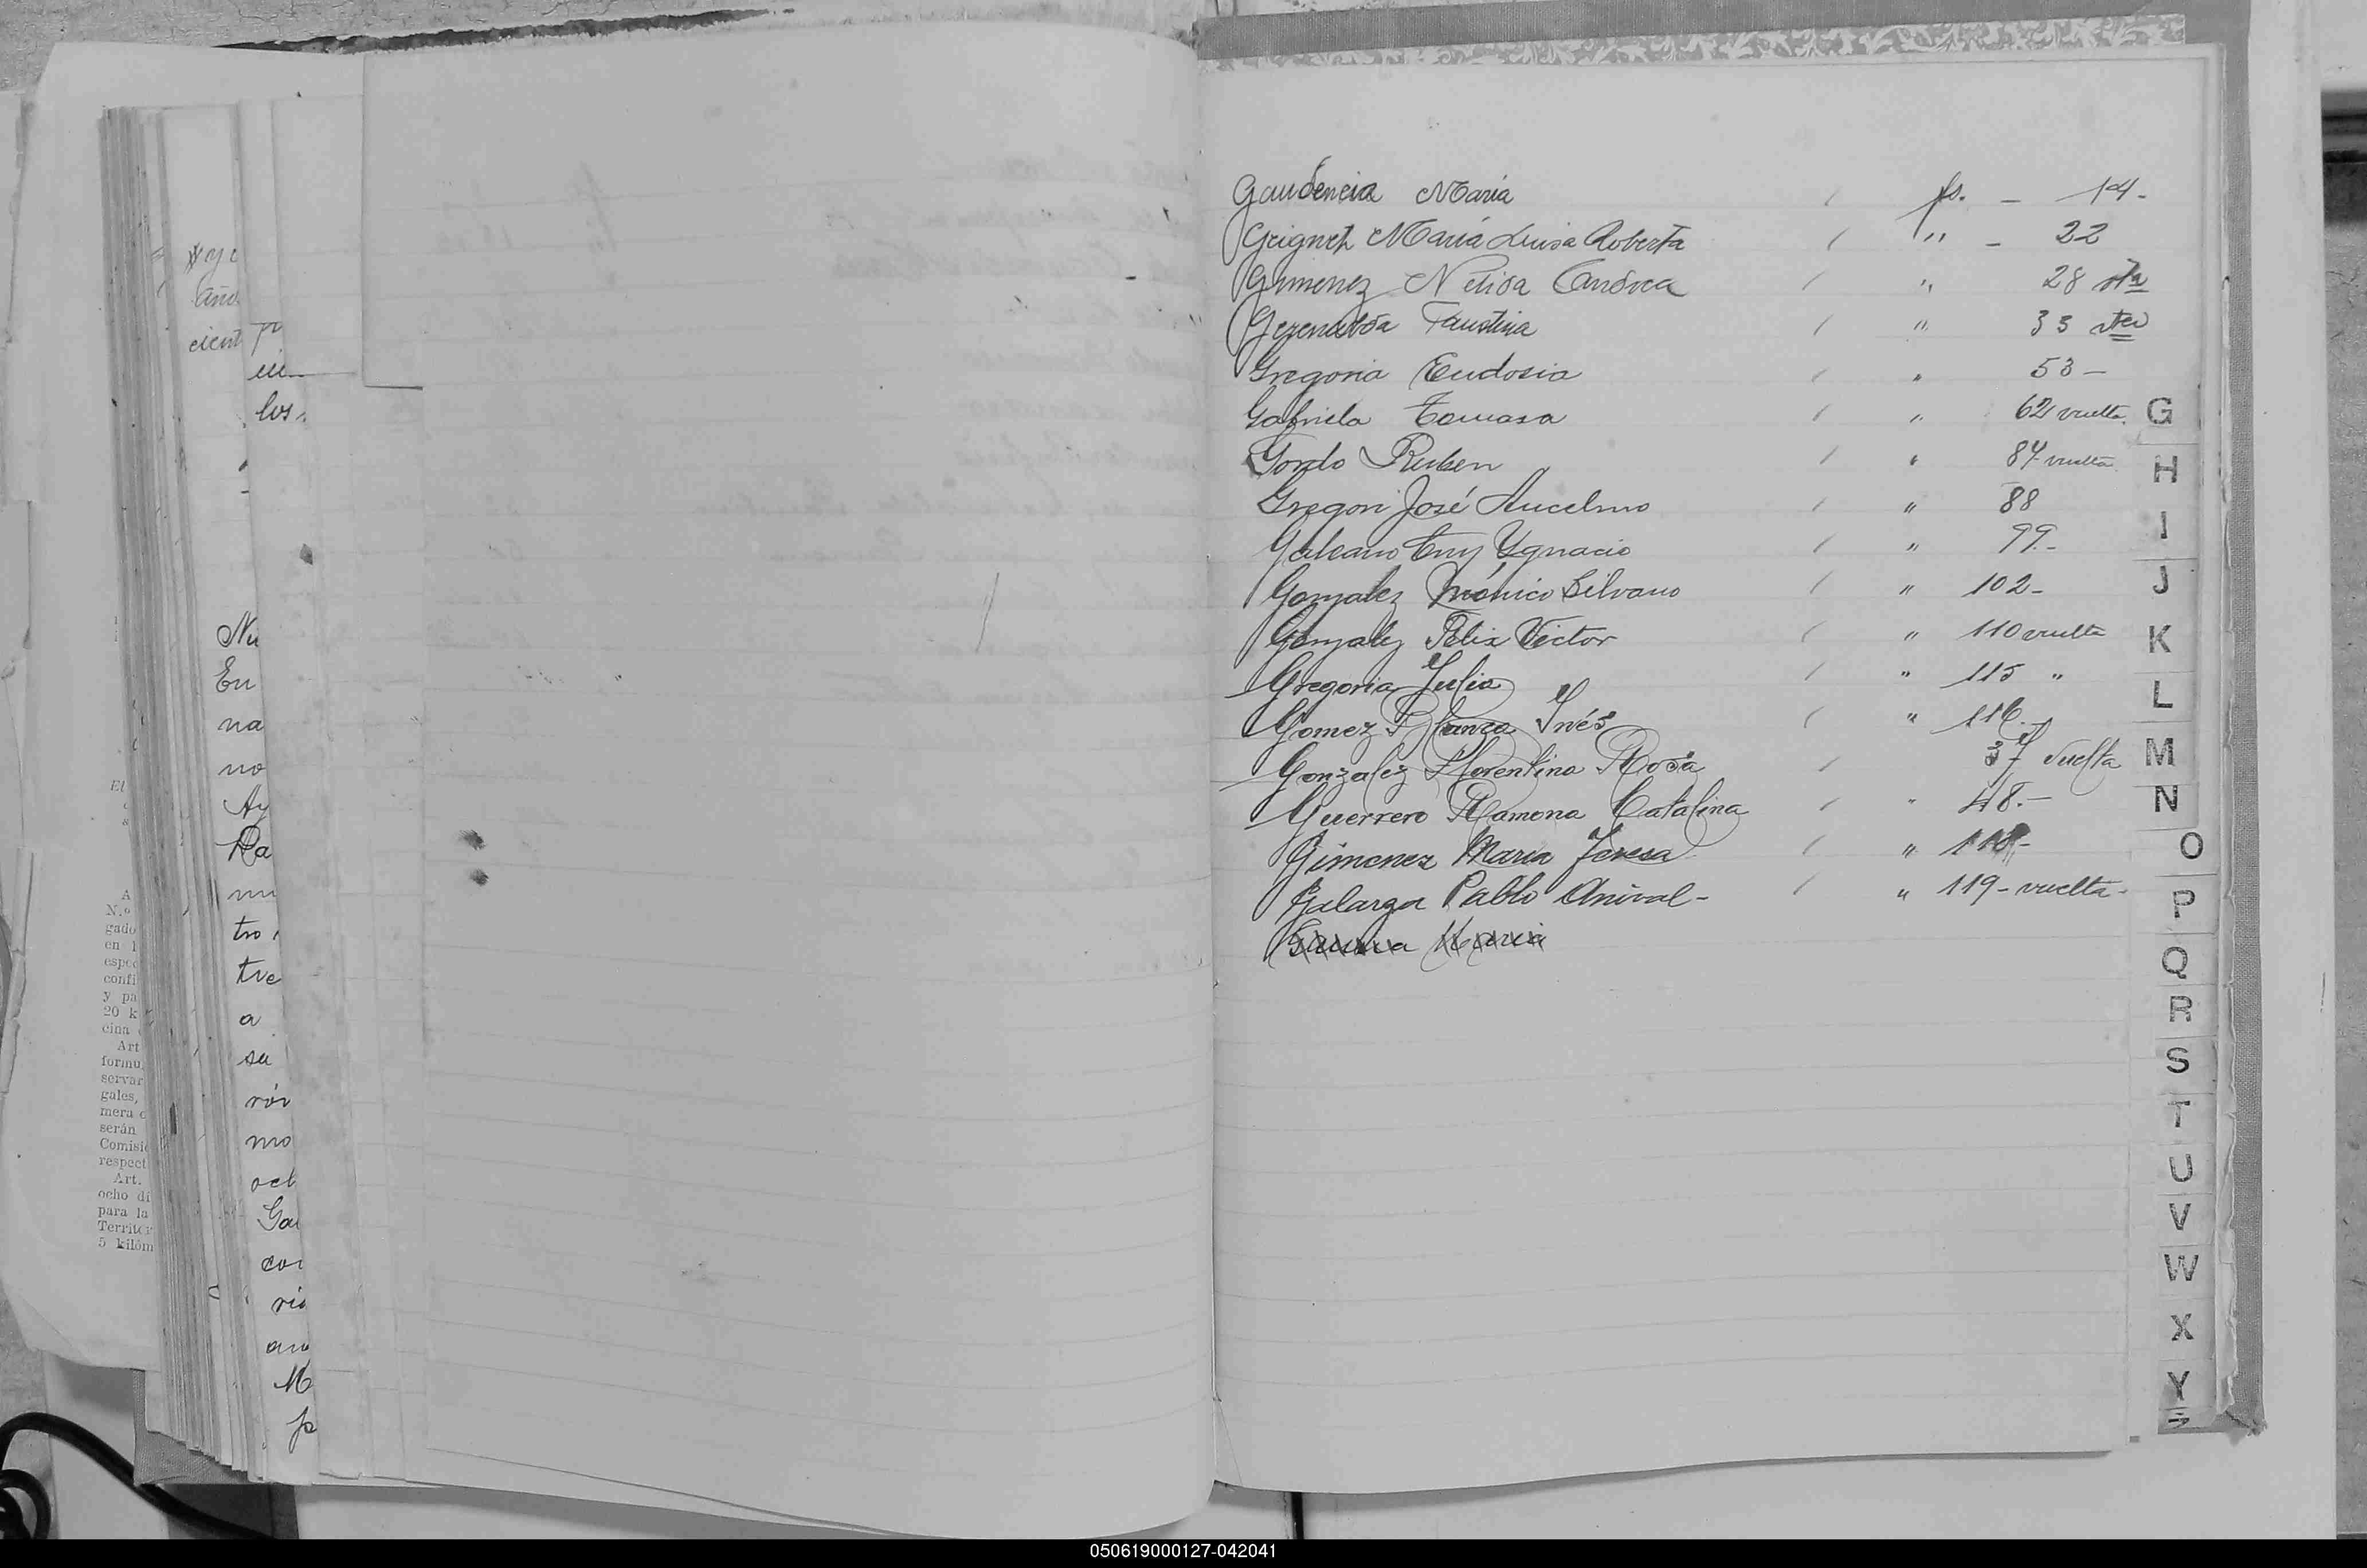 yc
año
cient
pr
los
Nu
En
na
no
Ay
Ra
tro
tre
a
su
rór
mo
oct
Go
co
ri
M
El
A
N.º
gado
en l
espec
confi
y pa
20 k
cina
Art
formu
servar
gales,
mera c
serán
Comisi
respect
Art.
ocho dí
para la
Territor
5 kilóm
Gaudencia María fs. - 14.-
Grignet María Luisa Roberta " - 22
Gimenez Nelida Andrea " 28 vta
Faustina " 33 vta
Gregoria Eudosia " 53 -
Gabriela Tomasa " 62 vuelta.
Gordo Ruben " 84 vuelta
Gregori José Ancelmo " 88
Galeano Eny Ygnacio " 99.-
Gonzalez Mónico Silvano " 102-
Gonzalez Felix Victor " 110 vuelta
Gregoria Julia " 115 "
Gomez Blanca Inés " 116.-
Gonzalez Florentina Rosa 37 vuelta
Guerrero Ramona Catalina " 48.-
Gimenez María Teresa " 118-
Galarza Pablo Anival- " 119- vuelta-
María
G
H
I
J
K
L
M
N
O
P
Q
R
S
T
U
V
W
X
Y
Z
050619000127-042041